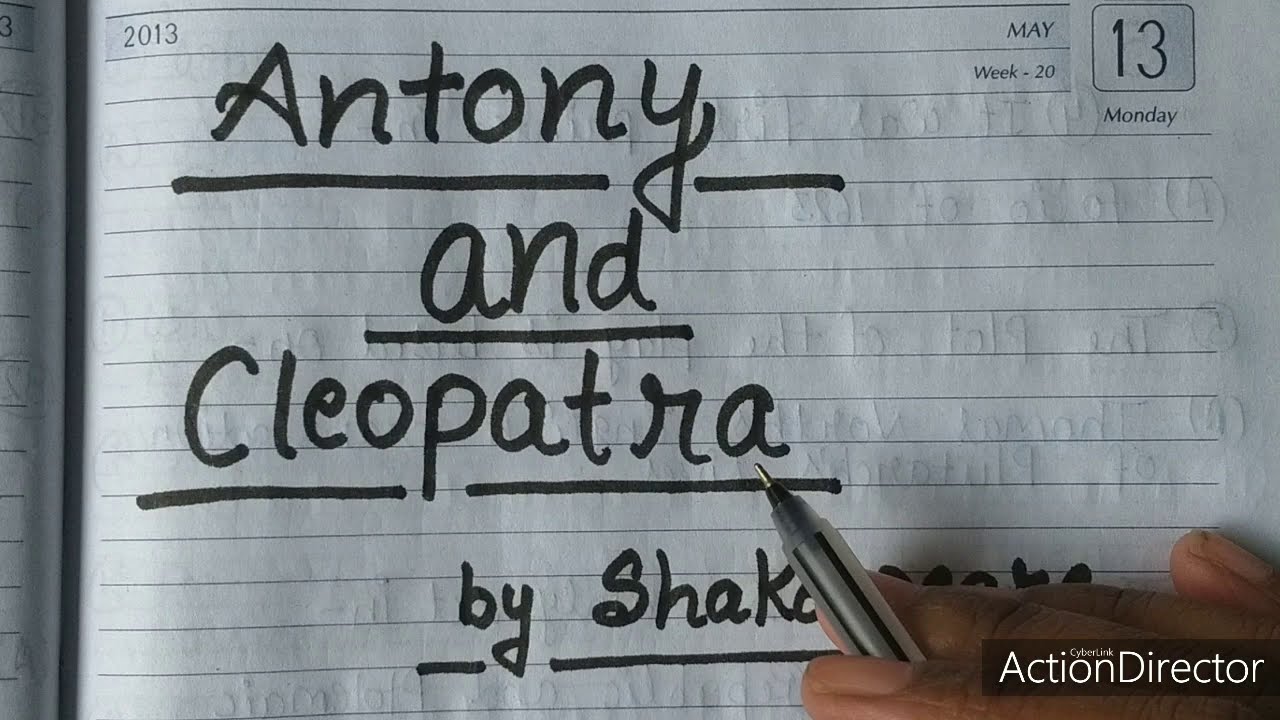 3
2013
MAY
13
Week - 20
Monday
Antony
and
Cleopatra
by Shak
CyberLink
ActionDirector